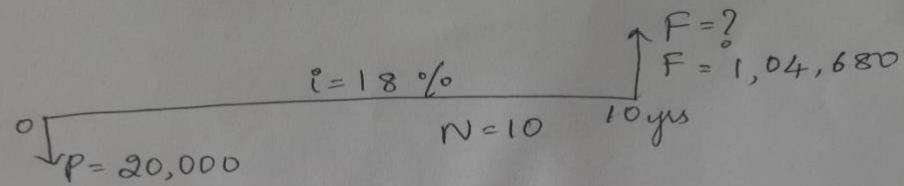 F = ?
F = 1,04,680
i = 18 %
0
N = 10
10 yrs
P = 20,000